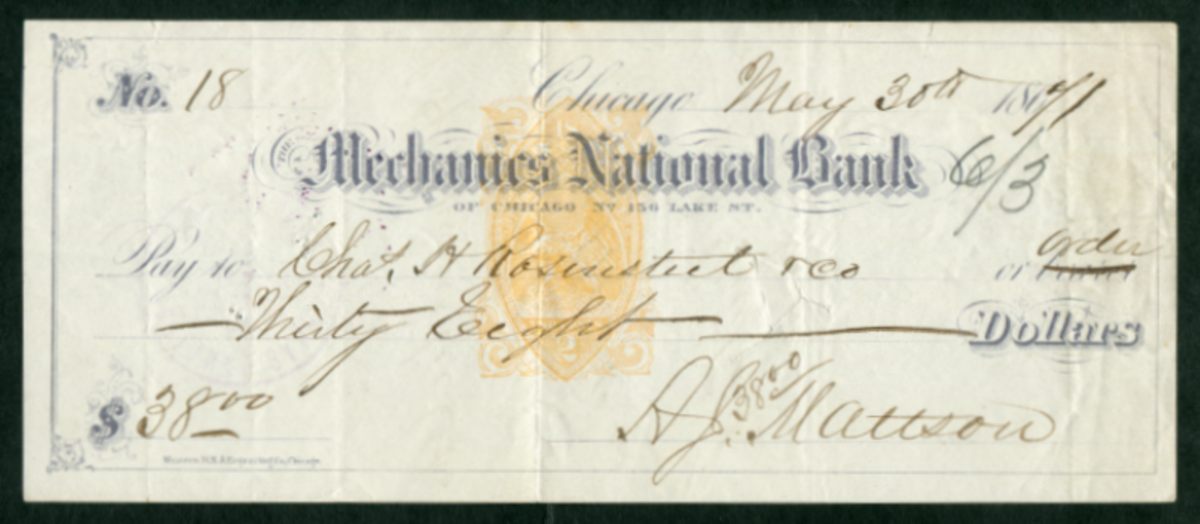 No. 18 Chicago May 30th 1871
THE Mechanics National Bank 6/3
OF CHICAGO No 156 LAKE ST.
Pay to Chas. H Rosensteet & co or order
Thirty Eight Dollars
$ 38.00 38.00
A J. Mattson